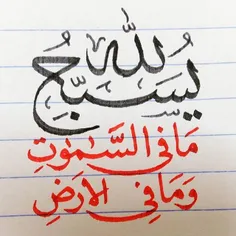 يُسَبِّحُ لِلّٰهِ
مَا فِي السَّمٰوٰتِ
وَمَا فِي الْأَرْضِ